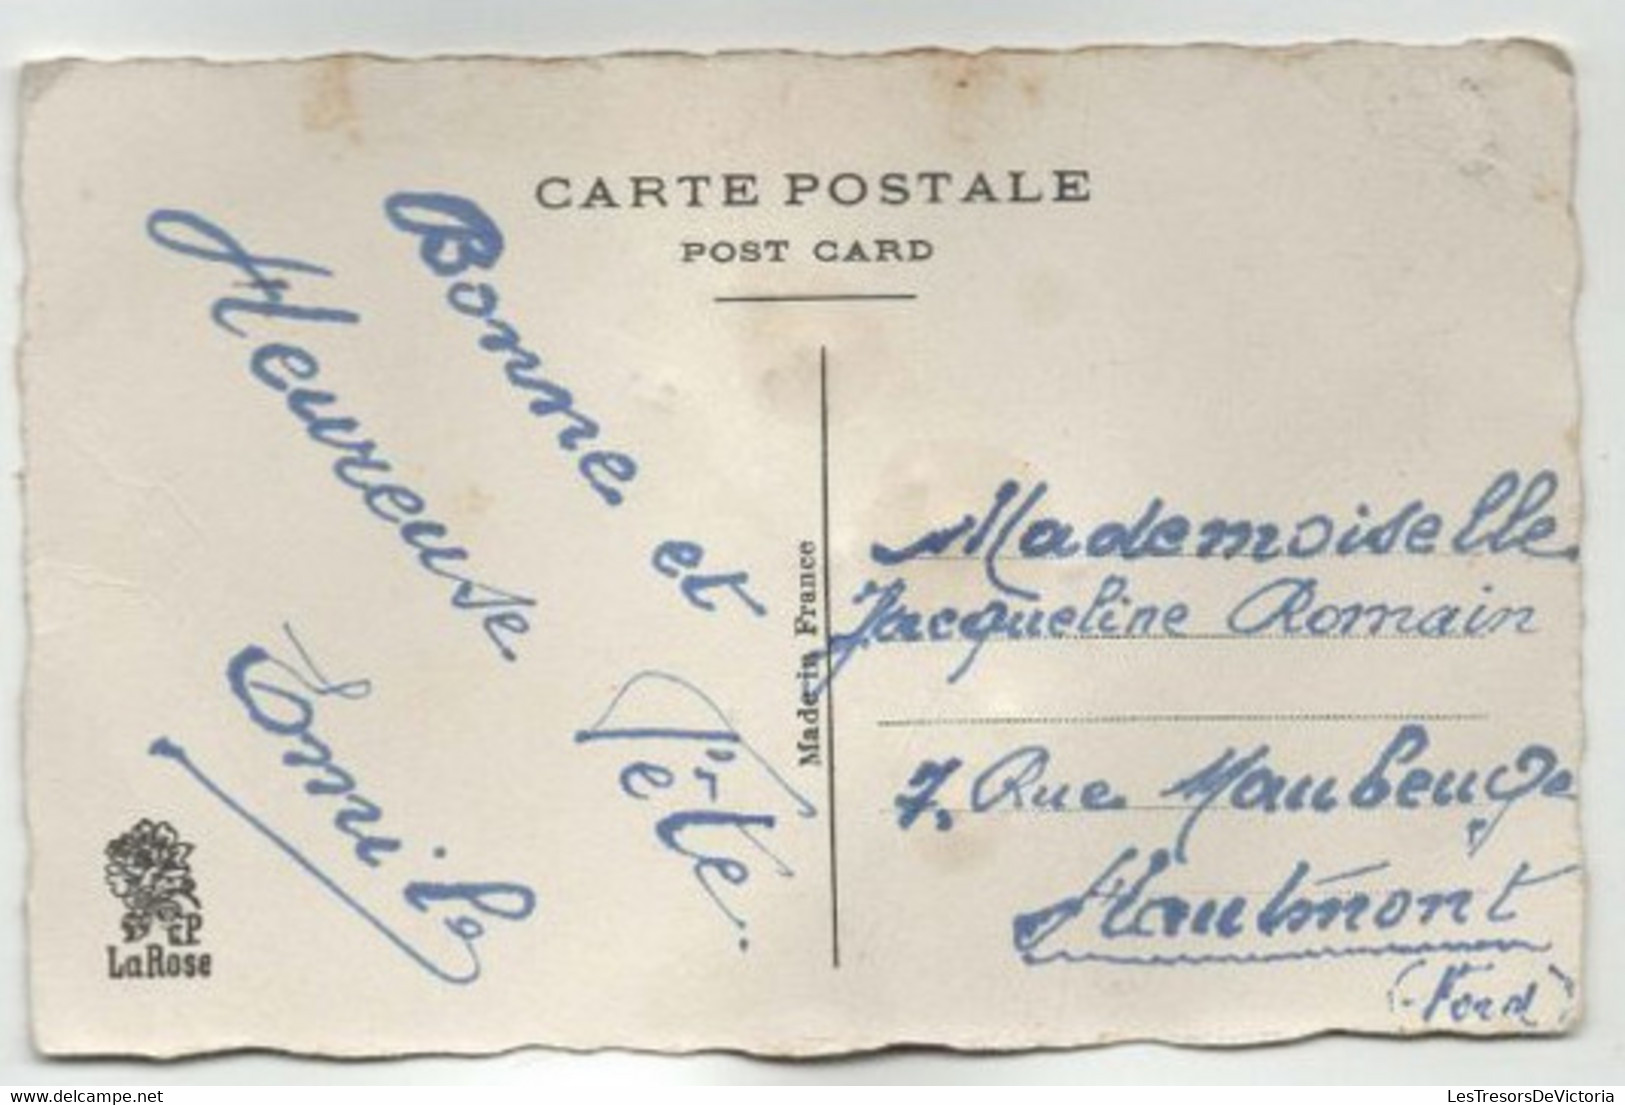 CARTE POSTALE
POST CARD
Bonne et
Heureuse
Fête.
Emile
Made in France
Mademoiselle
Jacqueline Romain
7, Rue Maubeuge
Hautmont
(Nord)
CP
La Rose
LesTresorsDeVictoria
www.delcampe.net